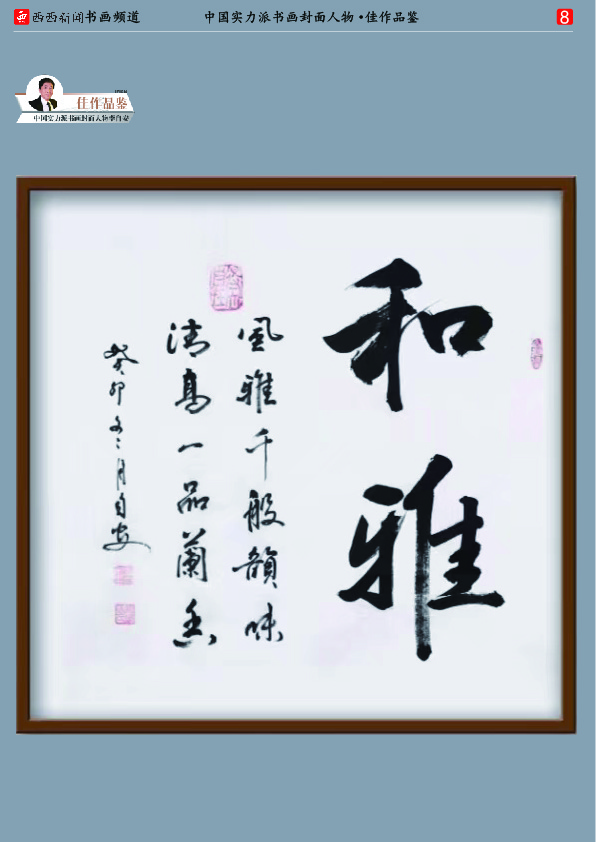 西 西西新闻书画频道
中国实力派书画封面人物·佳作品鉴
8
佳作品鉴
中国实力派书画封面人物李自安
和雅
風雅千般韻味
清高一品蘭香
癸卯冬月自安